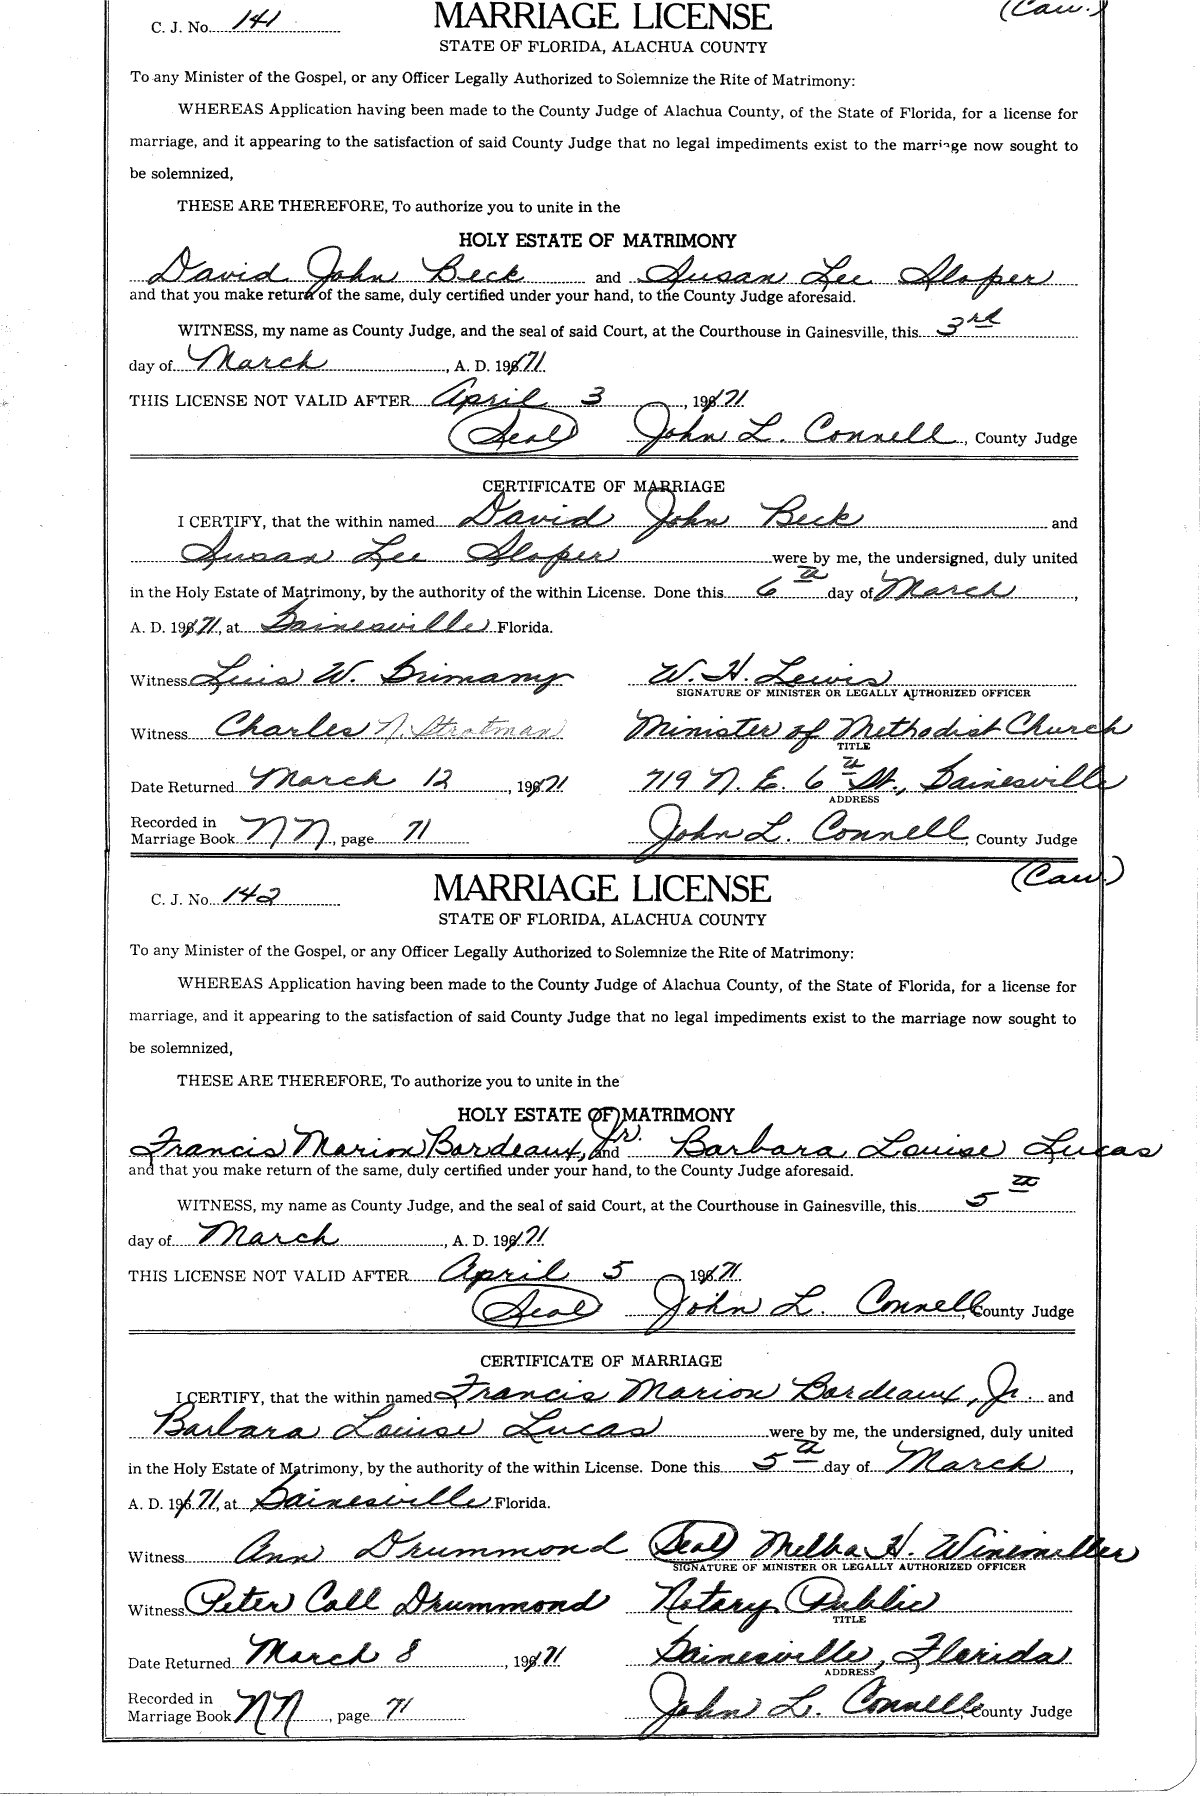 (Cau.)
C. J. No. 141 MARRIAGE LICENSE
STATE OF FLORIDA, ALACHUA COUNTY
To any Minister of the Gospel, or any Officer Legally Authorized to Solemnize the Rite of Matrimony:
WHEREAS Application having been made to the County Judge of Alachua County, of the State of Florida, for a license for
marriage, and it appearing to the satisfaction of said County Judge that no legal impediments exist to the marriage now sought to
be solemnized,
THESE ARE THEREFORE, To authorize you to unite in the
HOLY ESTATE OF MATRIMONY
David John Beck and Susan Lee Sloper
and that you make return of the same, duly certified under your hand, to the County Judge aforesaid.
WITNESS, my name as County Judge, and the seal of said Court, at the Courthouse in Gainesville, this 3rd
day of March, A. D. 1971.
THIS LICENSE NOT VALID AFTER April 3, 1971
(Seal) John L. Connell, County Judge
CERTIFICATE OF MARRIAGE
I CERTIFY, that the within named David John Beck and
Susan Lee Sloper were by me, the undersigned, duly united
in the Holy Estate of Matrimony, by the authority of the within License. Done this 6th day of March,
A. D. 1971, at Gainesville Florida.
Witness Luis W. W. H. Lewis
SIGNATURE OF MINISTER OR LEGALLY AUTHORIZED OFFICER
Witness Charles N. Stratman Minister of Methodist Church
TITLE
Date Returned March 12, 1971 719 N. E. 6th St., Gainesville
ADDRESS
Recorded in
Marriage Book NN, page 71 John L. Connell, County Judge
(Cau.)
C. J. No. 142 MARRIAGE LICENSE
STATE OF FLORIDA, ALACHUA COUNTY
To any Minister of the Gospel, or any Officer Legally Authorized to Solemnize the Rite of Matrimony:
WHEREAS Application having been made to the County Judge of Alachua County, of the State of Florida, for a license for
marriage, and it appearing to the satisfaction of said County Judge that no legal impediments exist to the marriage now sought to
be solemnized,
THESE ARE THEREFORE, To authorize you to unite in the
HOLY ESTATE OF MATRIMONY
Francis Marion Bordeaux, Jr. and Barbara Louise Lucas
and that you make return of the same, duly certified under your hand, to the County Judge aforesaid.
WITNESS, my name as County Judge, and the seal of said Court, at the Courthouse in Gainesville, this 5th
day of March, A. D. 1971
THIS LICENSE NOT VALID AFTER April 5 1971.
(Seal) John L. Connell, County Judge
CERTIFICATE OF MARRIAGE
I CERTIFY, that the within named Francis Marion Bordeaux, Jr. and
Barbara Louise Lucas were by me, the undersigned, duly united
in the Holy Estate of Matrimony, by the authority of the within License. Done this 5th day of March,
A. D. 1971, at Gainesville Florida.
Witness Ann Drummond (Seal) Melba H. Winemiller
SIGNATURE OF MINISTER OR LEGALLY AUTHORIZED OFFICER
Witness Peter Call Drummond Notary Public
TITLE
Date Returned March 8, 1971 Gainesville, Florida
ADDRESS
Recorded in
Marriage Book NN, page 71 John L. Connell, County Judge